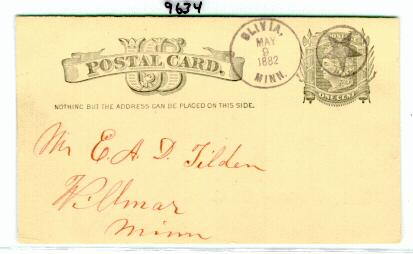 9634
US
POSTAL CARD.
NOTHING BUT THE ADDRESS CAN BE PLACED ON THIS SIDE.
OLIVIA,
MAY
9
1882
MINN.
ONE CENT
Mr E. A. D. Tilden
Willmar
Minn